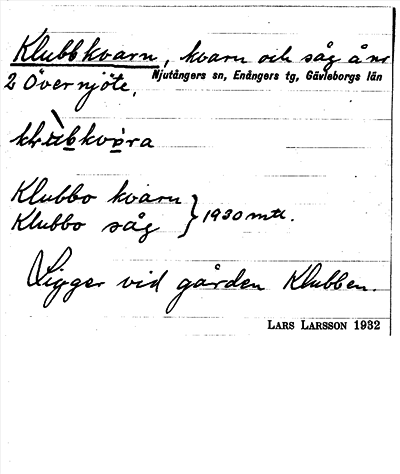 Klubbkvarn, kvarn och såg å nr
2 Övernjöte, Njutångers sn, Enångers tg, Gävleborgs län
Klubbo kvarn
Klubbo såg } 1930 mtl.
Ligger vid gården Klubben.
LARS LARSSON 1932